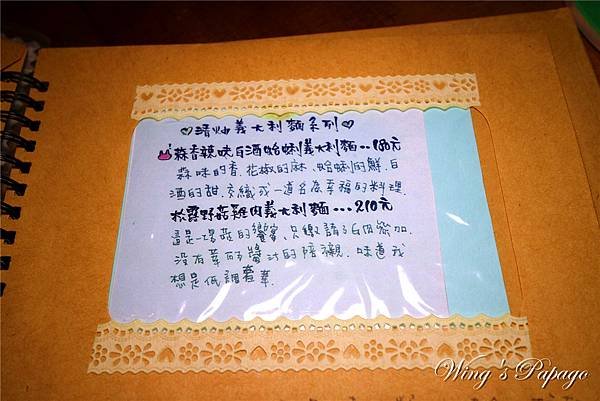 ♡清炒義大利麵系列♡
蒜香辣味白酒蛤蜊義大利麵..180元
蒜味的香.花椒的麻、蛤蜊的鮮.白
酒的甜.交織成一道名為幸福的料理.
松露野菇雞肉義大利麵...210元
這是一場菇的饗宴.只邀請了雞肉參加.
沒有華麗醬汁的陪襯.味道我
想是低調奢華.
Wing's Papago